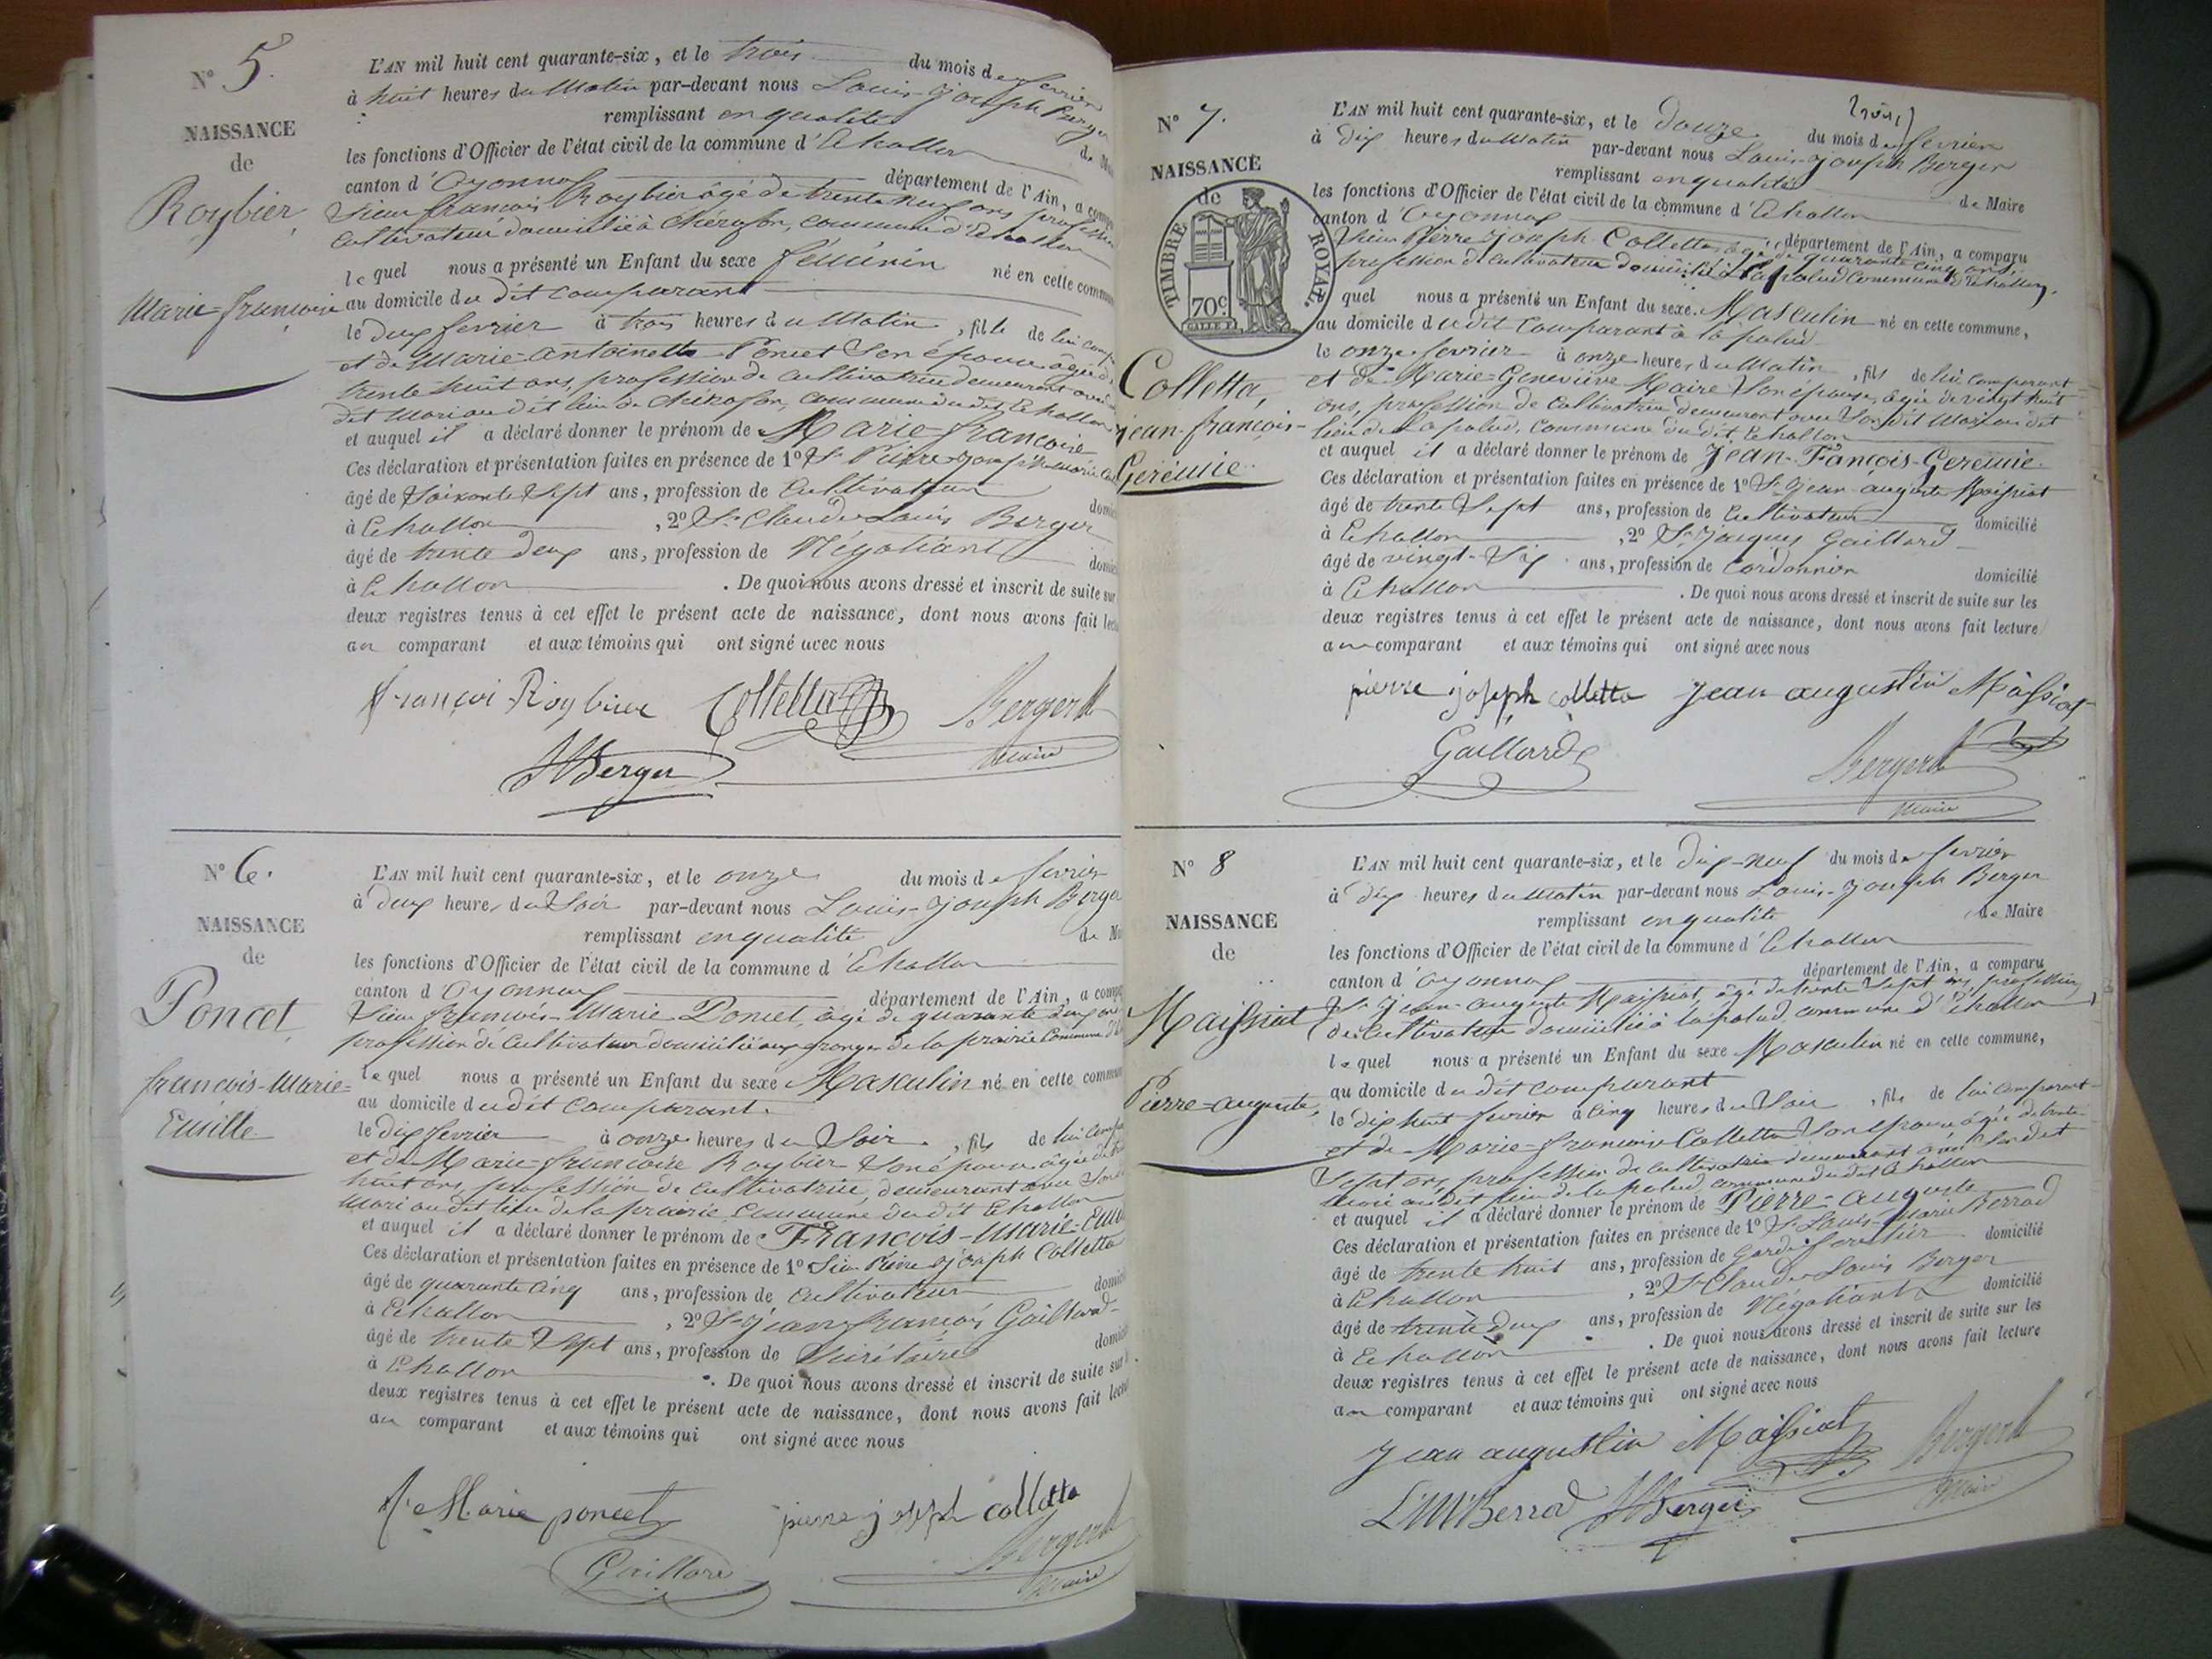 N° 5.
NAISSANCE
de
Roybier,
Marie-françoise
L'AN mil huit cent quarante-six, et le trois du mois de fevrier
à huit heures du Matin par-devant nous Louis-Joseph Berger
remplissant en qualité de
les fonctions d'Officier de l'état civil de la commune d'Echallon
canton d'Oyonnax département de l'Ain, a comparu
Sieur françois Roybier âgé de trente neuf ans, profession
Cultivateur domicilié à , commune d'Echallon
lequel nous a présenté un Enfant du sexe féminin né en cette commune
au domicile du dit comparant
le deux fevrier à trois heures du Matin, fille de lui comparant
et de Marie-antoinette Poncet Son épouse âgée de
trente huit ans, profession de Cultivatrice demeurant avec
dit Mari au dit lieu de , commune du dit Echallon
et auquel il a déclaré donner le prénom de Marie-françoise
Ces déclaration et présentation faites en présence de 1° Sr Pierre Joseph-Marie
âgé de Soixante Sept ans, profession de Cultivateur
à Echallon , 2° Sr Claude Louis Berger
âgé de trente deux ans, profession de Négotiant
à Echallon . De quoi nous avons dressé et inscrit de suite sur
deux registres tenus à cet effet le présent acte de naissance, dont nous avons fait lecture
au comparant et aux témoins qui ont signé avec nous
françoi Roybier Colletta Berger
Berger Maire
N° 6.
NAISSANCE
de
Poncet
françois-Marie-
Emille
L'AN mil huit cent quarante-six, et le onze du mois de fevrier
à deux heures du Soir par-devant nous Louis-Joseph Berger
remplissant en qualité de
les fonctions d'Officier de l'état civil de la commune d'Echallon
canton d'Oyonnax département de l'Ain, a comparu
Sieur françois-Marie Poncet, âgé de quarante deux ans
profession de Cultivateur domicilié aux granges de la prairie Commune
lequel nous a présenté un Enfant du sexe Masculin né en cette commune
au domicile du dit comparant.
le dix fevrier à onze heures du Soir, fils de lui comparant
et de Marie-françoise Roybier Son épouse âgée de
huit ans, profession de Cultivatrice, demeurant avec Son
Mari au dit lieu de la prairie, Commune du dit Echallon
et auquel il a déclaré donner le prénom de François-Marie-Emille
Ces déclaration et présentation faites en présence de 1° Sieur Pierre Joseph Colletta
âgé de quarante Cinq ans, profession de Cultivateur
à Echallon , 2° Sr Jean françois Gaillard
âgé de trente Sept ans, profession de Sécrétaire
à Echallon . De quoi nous avons dressé et inscrit de suite sur
deux registres tenus à cet effet le présent acte de naissance, dont nous avons fait lecture
au comparant et aux témoins qui ont signé avec nous
Marie poncet pierre joseph colletta
Gaillard Berger
Maire
N° 7.
NAISSANCE
de
TIMBRE ROYAL.
70c.
Colletta,
jean-françois-
Geremie
L'AN mil huit cent quarante-six, et le Douze du mois de fevrier
à Dix heures du Matin par-devant nous Louis-Joseph Berger
remplissant en qualité de Maire
les fonctions d'Officier de l'état civil de la commune d'Echallon
canton d'Oyonnax département de l'Ain, a comparu
Sieur Pierre Joseph Colletta, âgé de quarante cinq ans,
profession de Cultivateur domicilié à la palud Commune d'Echallon.
quel nous a présenté un Enfant du sexe Masculin né en cette commune,
au domicile du dit comparant à la palud
le onze fevrier à onze heures du Matin, fils de lui comparant
et de Marie-Geneviève Maire Son épouse, âgée de vingt huit
ans, profession de Cultivatrice demeurant avec Son dit Mari au dit
lieu de la palud, commune du dit Echallon
et auquel il a déclaré donner le prénom de Jean-Fançois-Geremie.
Ces déclaration et présentation faites en présence de 1° Sr Jean-auguste Maissiat
âgé de trente Sept ans, profession de Cultivateur domicilié
à Echallon , 2° Sr Jacques Gaillard
âgé de vingt-Six ans, profession de Cordonnier domicilié
à Echallon . De quoi nous avons dressé et inscrit de suite sur les
deux registres tenus à cet effet le présent acte de naissance, dont nous avons fait lecture
au comparant et aux témoins qui ont signé avec nous
pierre joseph colletta Jean augustin Maissiat
Gaillard Berger
Maire
N° 8
NAISSANCE
de
Maissiat
Pierre-auguste,
L'AN mil huit cent quarante-six, et le Dix-neuf du mois de fevrier
à Dix heures du Matin par-devant nous Louis-Joseph Berger
remplissant en qualité de Maire
les fonctions d'Officier de l'état civil de la commune d'Echallon
canton d'Oyonnax département de l'Ain, a comparu
Sr Jean-auguste Maissiat, âgé de trente Sept ans, profession
de Cultivateur domicilié à la palud commune d'Echallon
lequel nous a présenté un Enfant du sexe Masculin né en cette commune,
au domicile du dit comparant
le dix huit fevrier à Cinq heures du Soir, fils de lui comparant
et de Marie-françoise Colletta Son épouse âgée de trente
Sept ans, profession de Cultivatrice demeurant avec Son dit
Mari au dit lieu de la palud, commune du dit Echallon
et auquel il a déclaré donner le prénom de Pierre-auguste
Ces déclaration et présentation faites en présence de 1° Sr Louis-Marie Berrod
âgé de trente huit ans, profession de Garde forestier domicilié
à Echallon , 2° Sr Claude Louis Berger
âgé de trente deux ans, profession de Négotiant domicilié
à Echallon . De quoi nous avons dressé et inscrit de suite sur les
deux registres tenus à cet effet le présent acte de naissance, dont nous avons fait lecture
au comparant et aux témoins qui ont signé avec nous
Jean augustin Maissiat Berger
L M Berrod Berger Maire